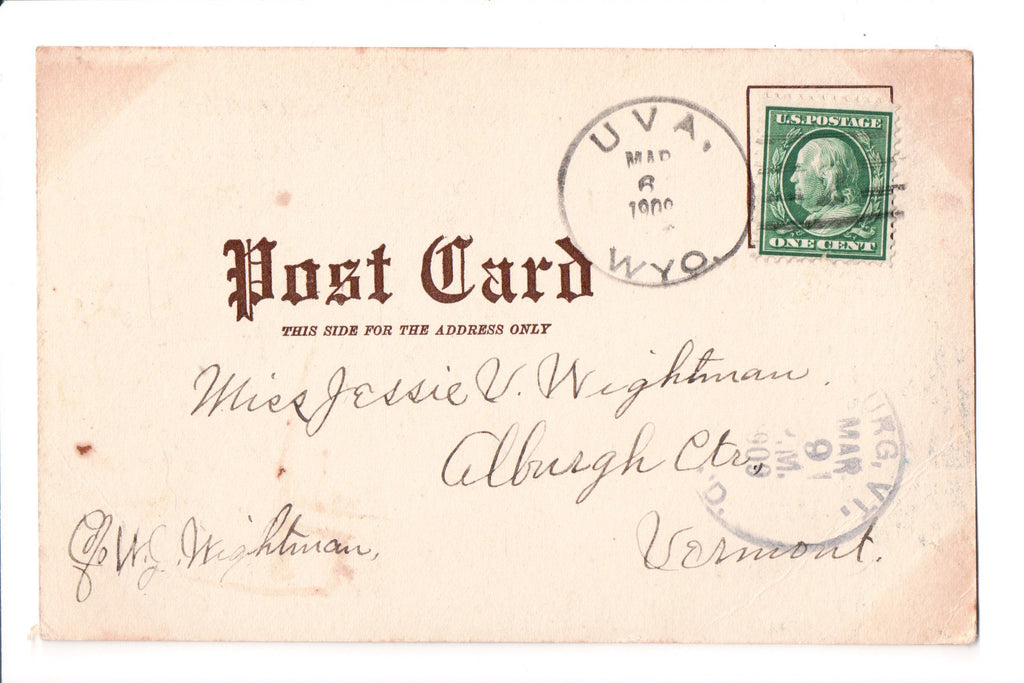 UVA,
MAR
6
1909
WYO.
U.S. POSTAGE
ONE CENT
Post Card
THIS SIDE FOR THE ADDRESS ONLY
Miss Jessie V. Wightman.
Alburgh Ctr.,
Vermont.
C/o W. J. Wightman,
URG, VT.
MAR
9
.M.
909
D.